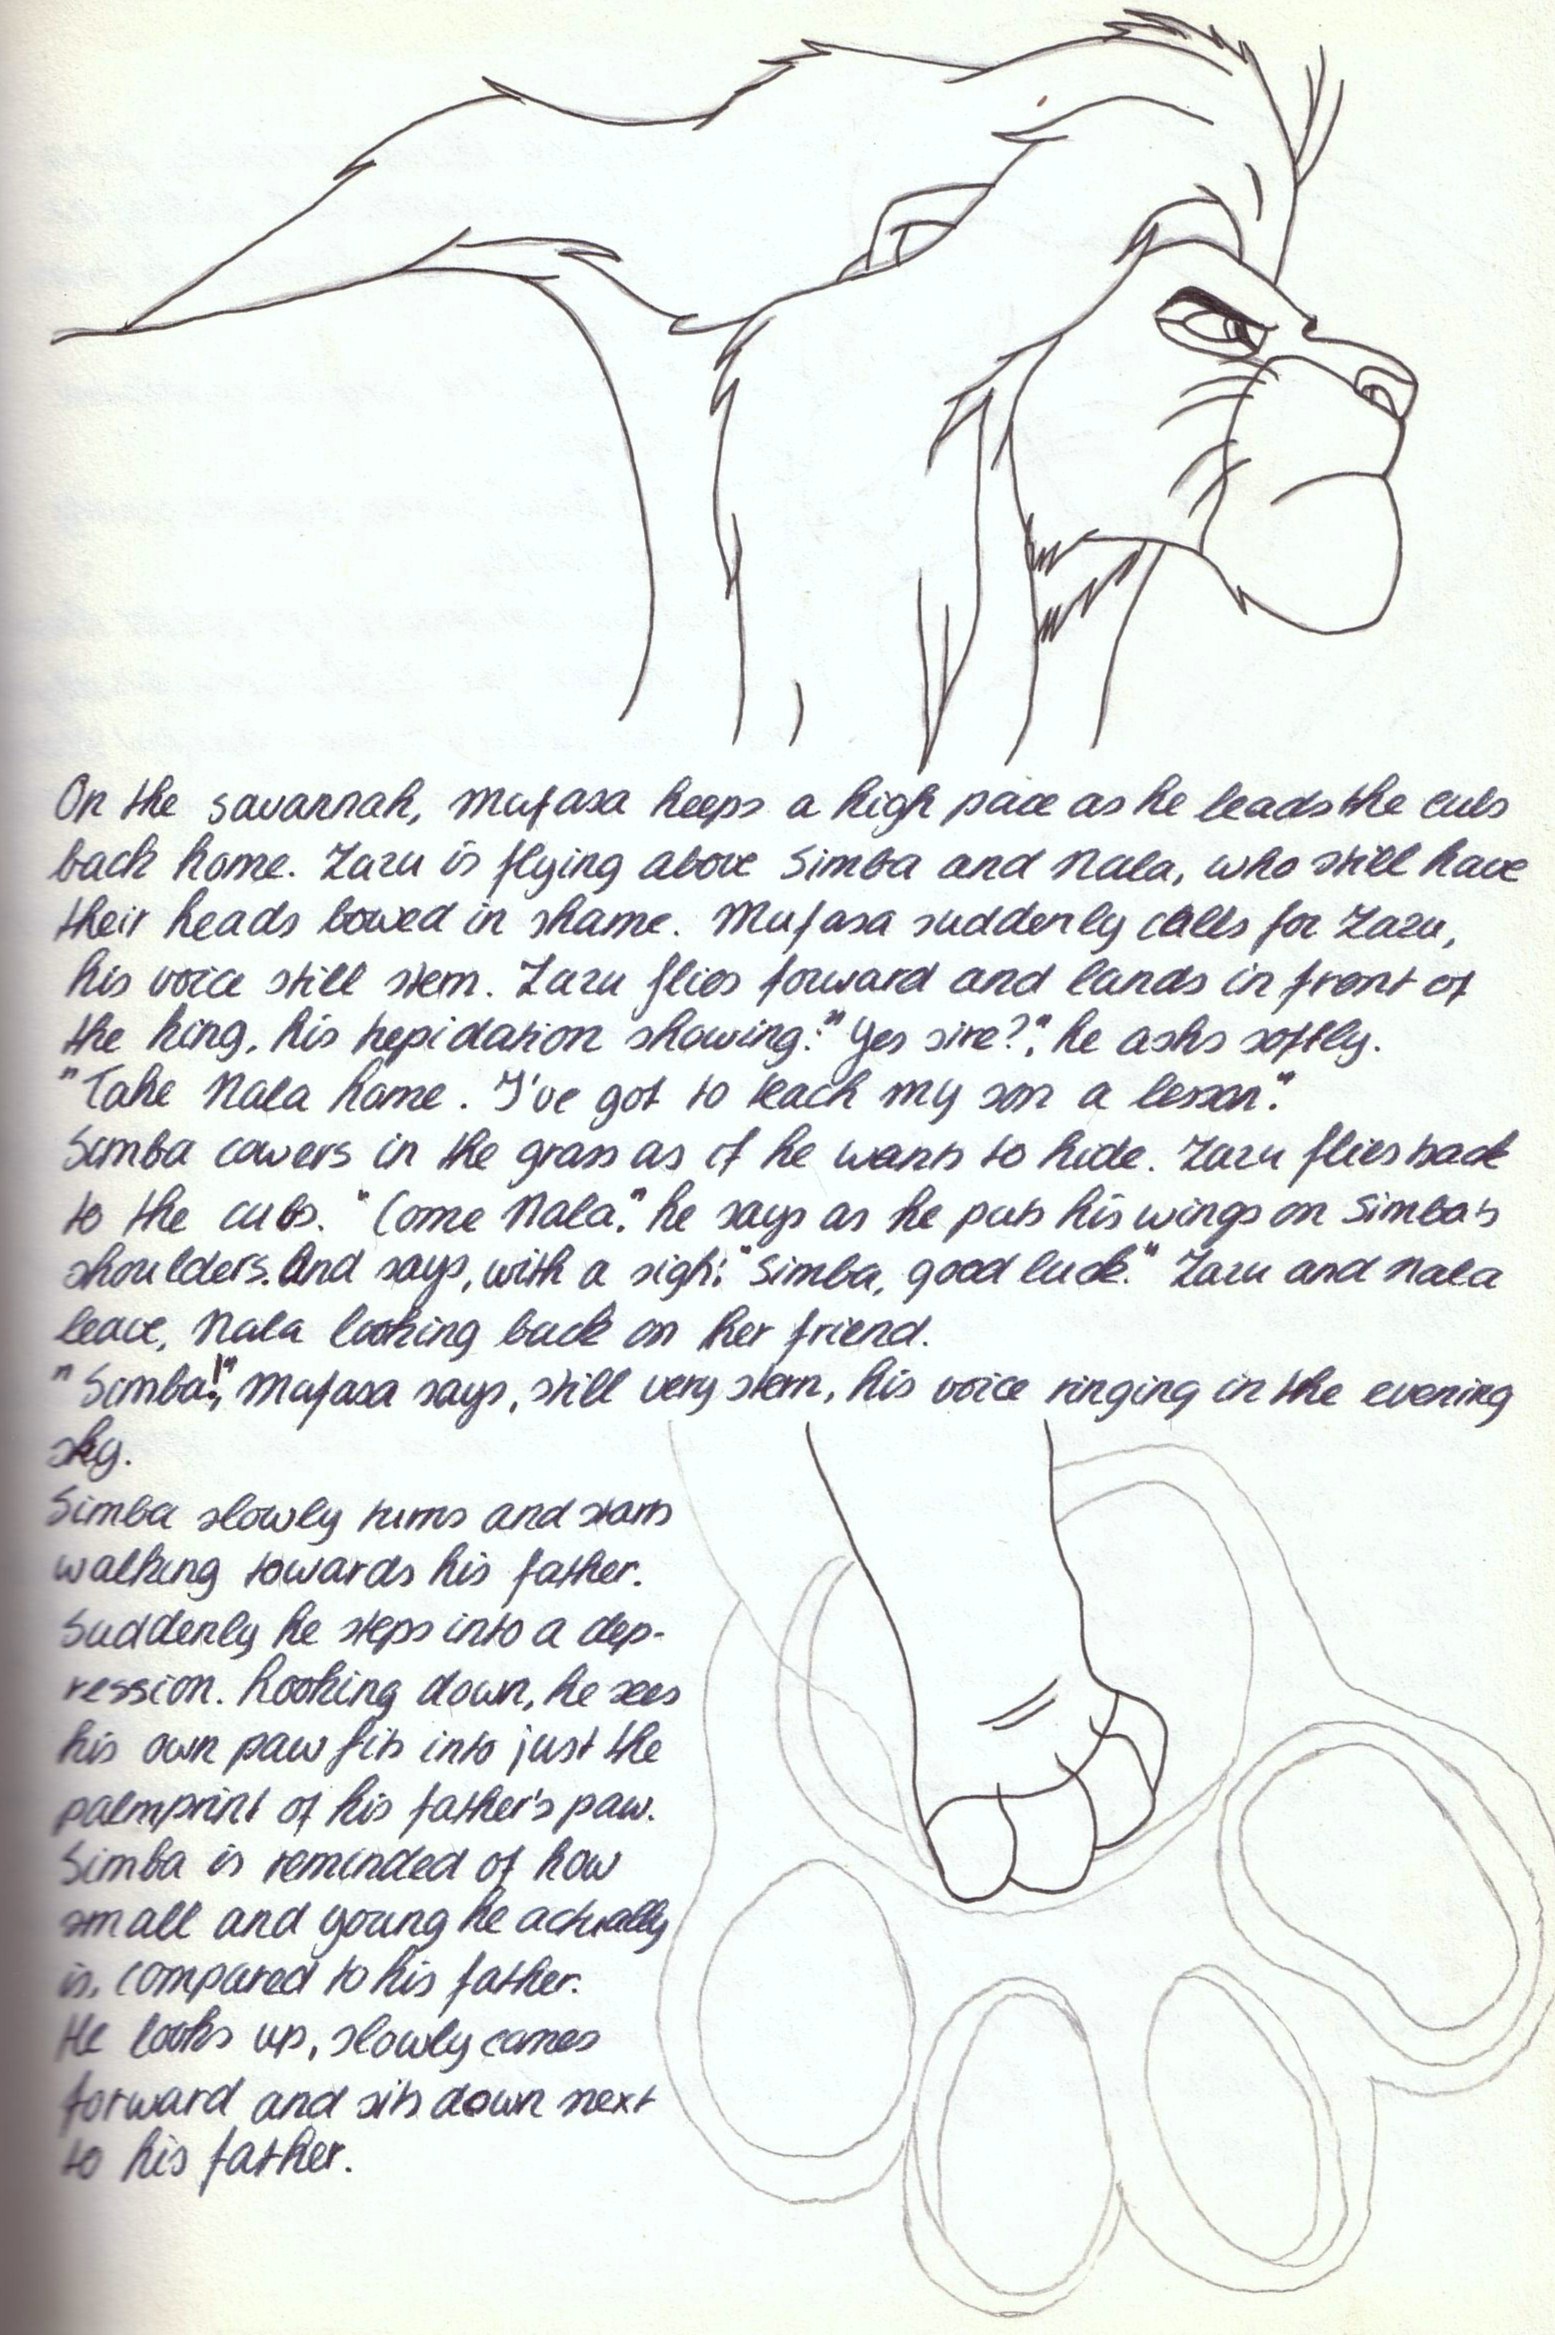 On the savannah, Mufasa keeps a high pace as he leads the cubs
back home. Zazu is flying above Simba and Nala, who still have
their heads bowed in shame. Mufasa suddenly calls for Zazu,
his voice still stern. Zazu flies forward and lands in front of
the king, his trepidation showing: "Yes sire?", he asks softly.
"Take Nala home. I've got to teach my son a lesson."
Simba cowers in the grass as if he wants to hide. Zazu flies back
to the cubs. "Come Nala." he says as he puts his wings on Simba's
shoulders. And says, with a sigh: "Simba, good luck." Zazu and Nala
leave, Nala looking back on her friend.
"Simba!", Mufasa says, still very stern, his voice ringing in the evening
sky.
Simba slowly turns and starts
walking towards his father.
Suddenly he steps into a dep-
ression. Looking down, he sees
his own paw fits into just the
palmprint of his father's paw.
Simba is reminded of how
small and young he actually
is, compared to his father.
He looks up, slowly comes
forward and sits down next
to his father.